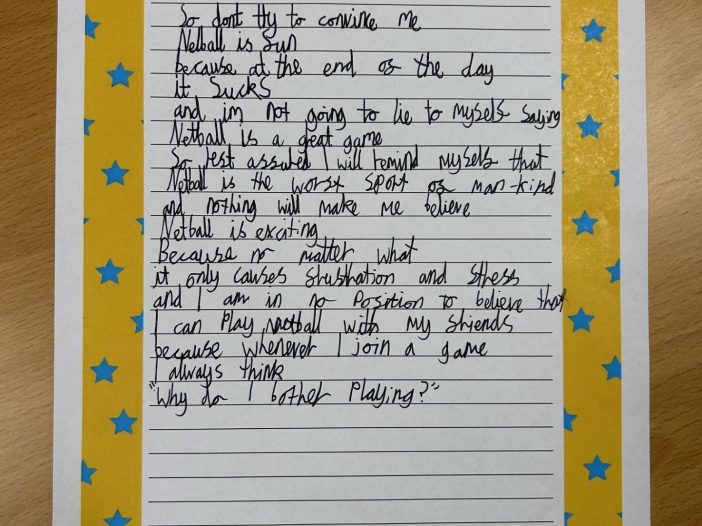 So dont try to convince me
Netball is fun
because at the end of the day
it sucks
and im not going to lie to myself saying
Netball is a great game
So rest assured I will remind myself that
Netball is the worst sport of man-kind
and nothing will make me believe
Netball is exciting
Because no matter what
it only causes frustration and stress
and I am in no position to believe that
I can play netball with my friends
because whenever I join a game
I always think
"Why do I bother playing?"